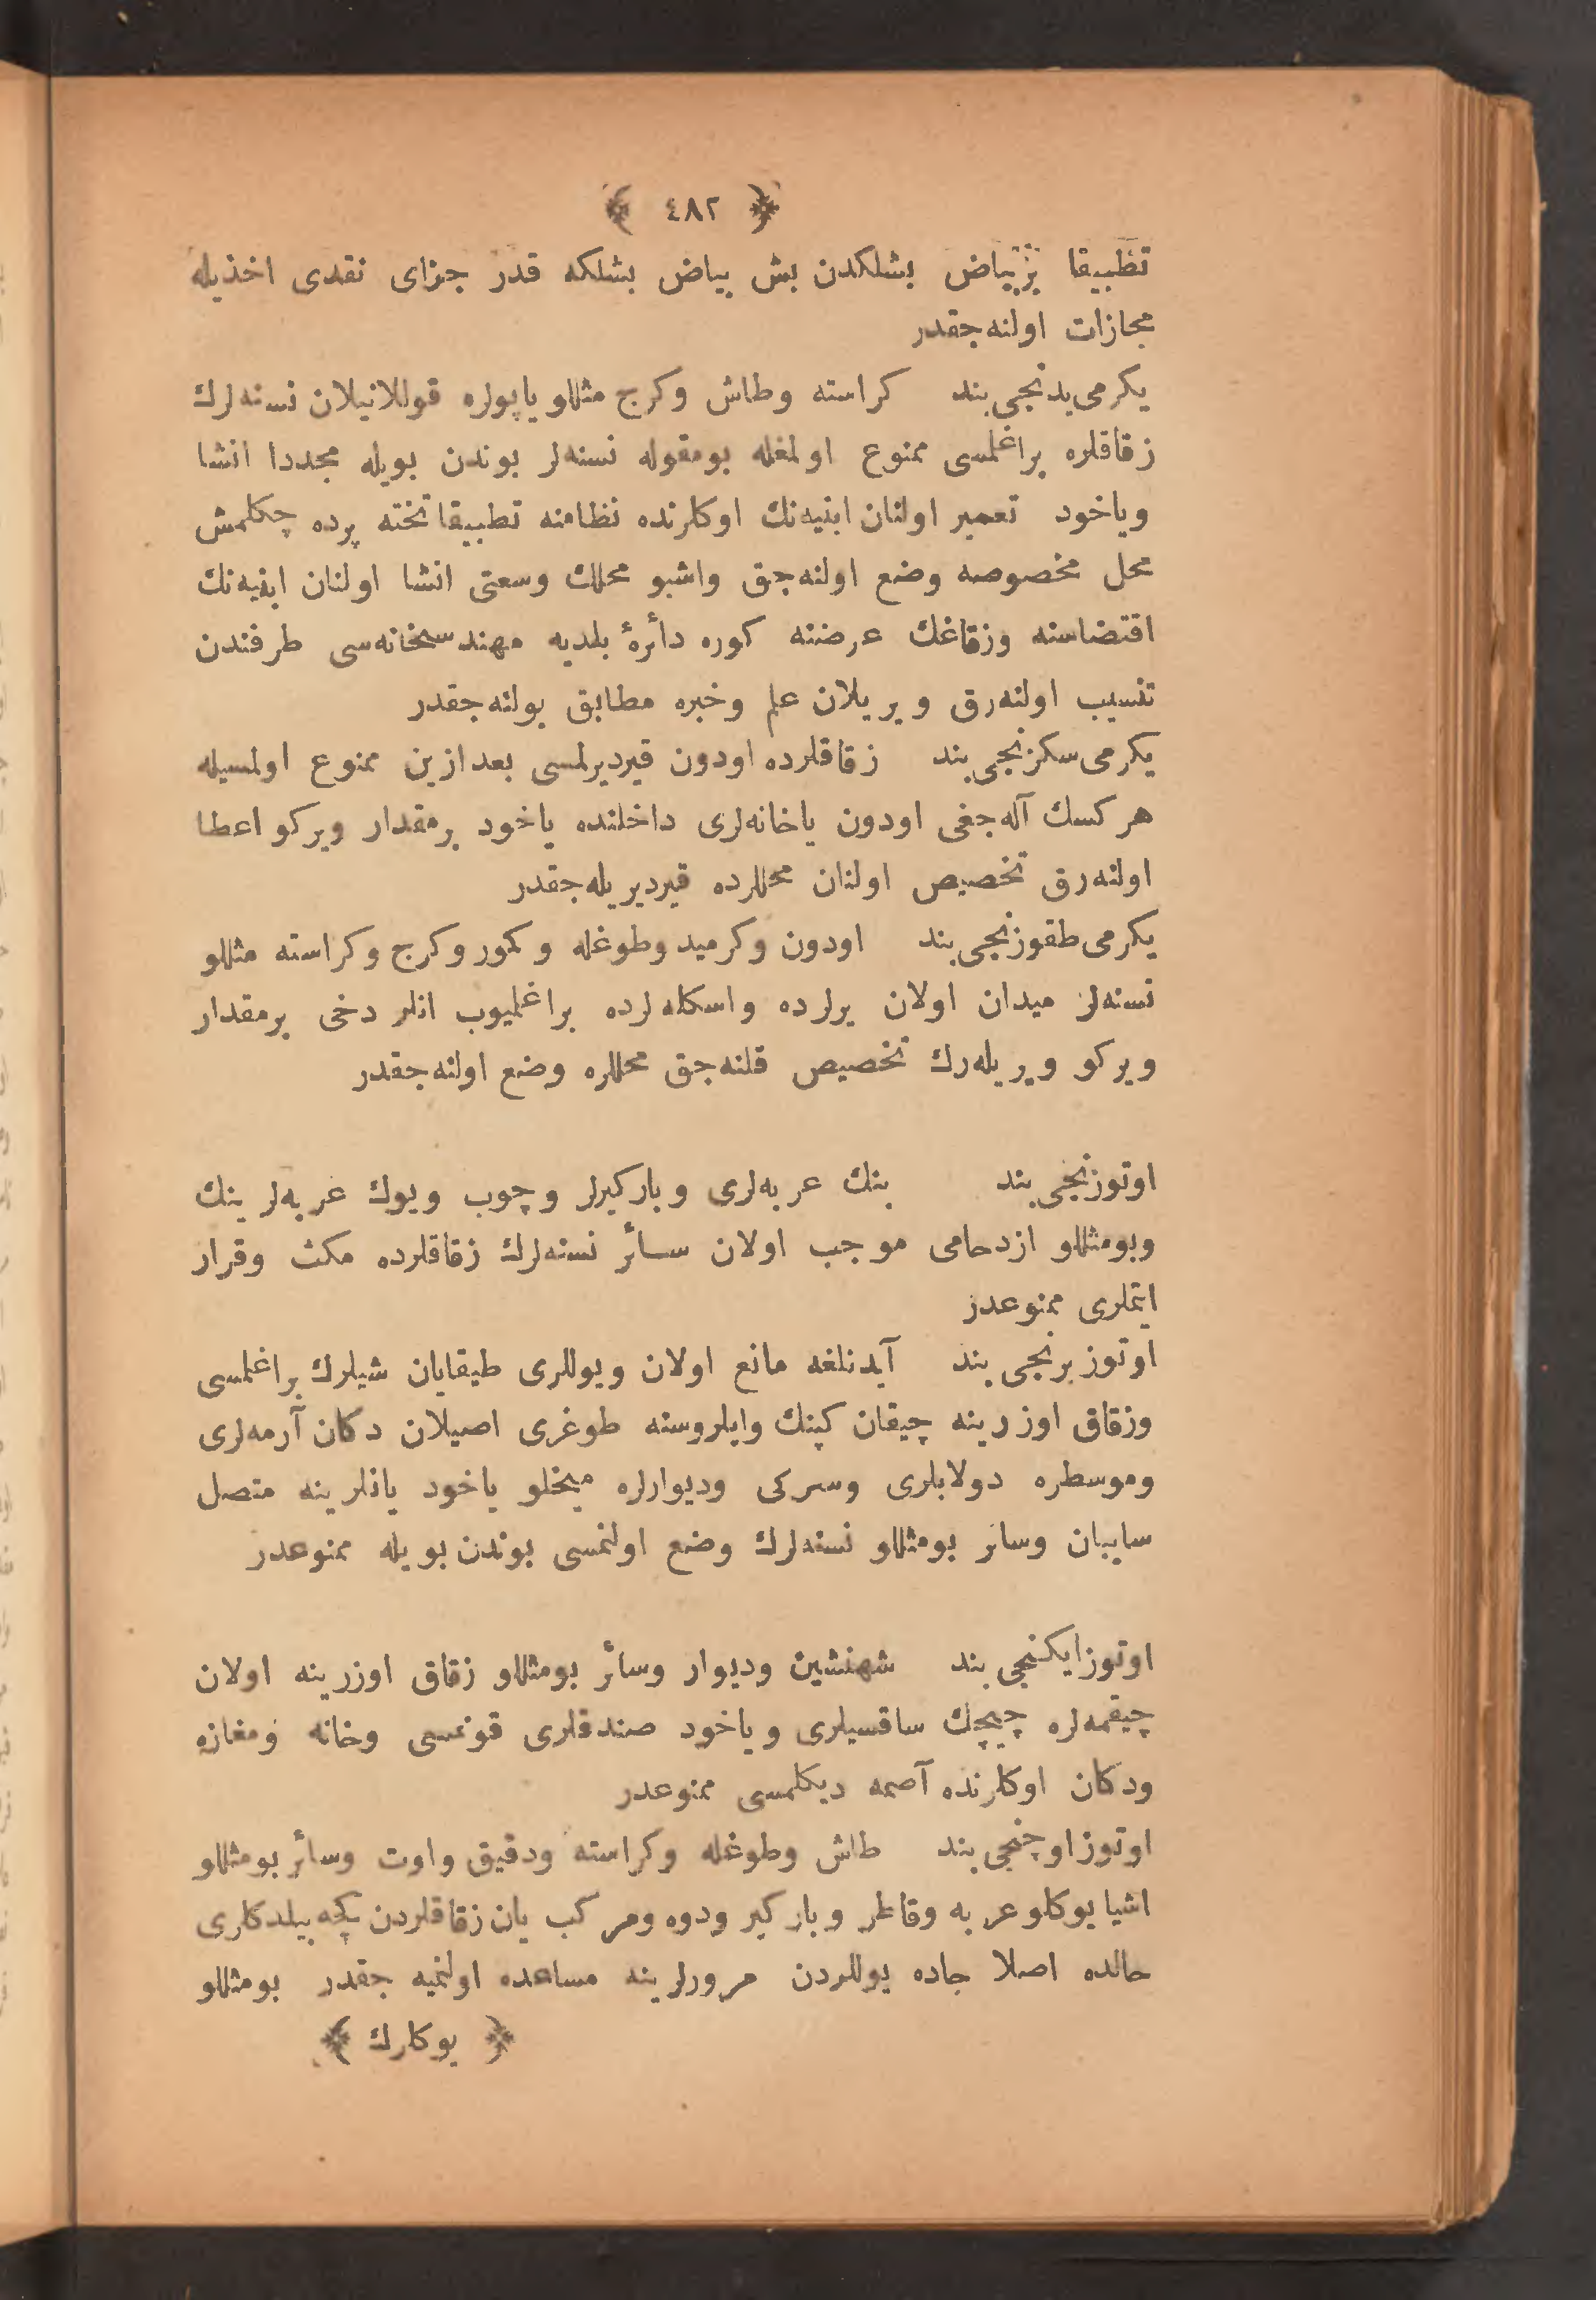 ﴿ ٤٨٢ ﴾
تطبیقا بر بیاض بشلكدن بش بیاض بشلكه قدر جزای نقدی اخذیله
مجازات اولنه‌جقدر
یكرمی‌یدنجی بند كراسته وطاش وكرج مثللو یاپولره قوللانیلان نسنه‌لرك
زقاقلره براغلمسی ممنوع اولمغله بومقوله نسنه‌لر بوندن بویله مجددا انشا
ویاخود تعمیر اولنان ابنیه‌نك اوكلرنده نظامنه تطبیقا تخته پرده چكلمش
محل مخصوصه وضع اولنه‌جق واشبو محللك وسعتی انشا اولنان ابنیه‌نك
اقتضاسنه وزقاغك عرضنه كوره دائرهٔ بلدیه مهندسخانه‌سی طرفندن
تنسیب اولنه‌رق ویریلان علم وخبره مطابق بولنه‌جقدر
یكرمی‌سكزنجی بند زقاقلرده اودون قیردیرلمسی بعدازین ممنوع اولمسیله
هركسك آله‌جغی اودون یاخانه‌لری داخلنده یاخود برمقدار ویركو اعطا
اولنه‌رق تخصیص اولنان محللرده قیردیریله‌جقدر
یكرمی‌طقوزنجی بند اودون وكرمید وطوغله وكمور وكرج وكراسته مثللو
نسنه‌لر میدان اولان یرلرده واسكله‌لرده براغلمیوب انلر دخی برمقدار
ویركو ویریله‌رك تخصیص قلنه‌جق محللره وضع اولنه‌جقدر
اوتوزنجی بند بنك عربه‌لری وباركیرلر وچوب ویوك عربه‌لرینك
وبومثللو ازدحامی موجب اولان سائر نسنه‌لرك زقاقلرده مكث وقرار
ایتملری ممنوعدر
اوتوز برنجی بند آیدنلغه مانع اولان ویوللری طیقایان شیلرك براغلمسی
وزقاق اوزرینه چیقان كپنك وایلروسنه طوغری اصیلان دكان آرمه‌لری
وموسطره دولابلری وسركی ودیوارلره میخلو یاخود یانلرینه متصل
سایبان وسائر بومثللو نسنه‌لرك وضع اولنمسی بوندن بویله ممنوعدر
اوتوزایكنجی بند شهنشین ودیوار وسائر بومثللو زقاق اوزرینه اولان
چیقمه‌لره چیچك ساقسیلری ویاخود صندقلری قونمسی وخانه ومغازه
ودكان اوكلرنده آصمه دیكلمسی ممنوعدر
اوتوزاوچنجی بند طاش وطوغله وكراسته ودقیق واوت وسائر بومثللو
اشیا یوكلو عربه وقاطر وباركیر ودوه ومركب یان زقاقلردن كچه‌بیلدكلری
حالده اصلا جاده یوللردن مرورلرینه مساعده اولنمیه‌جقدر بومثللو
﴿ یوكلرك ﴾